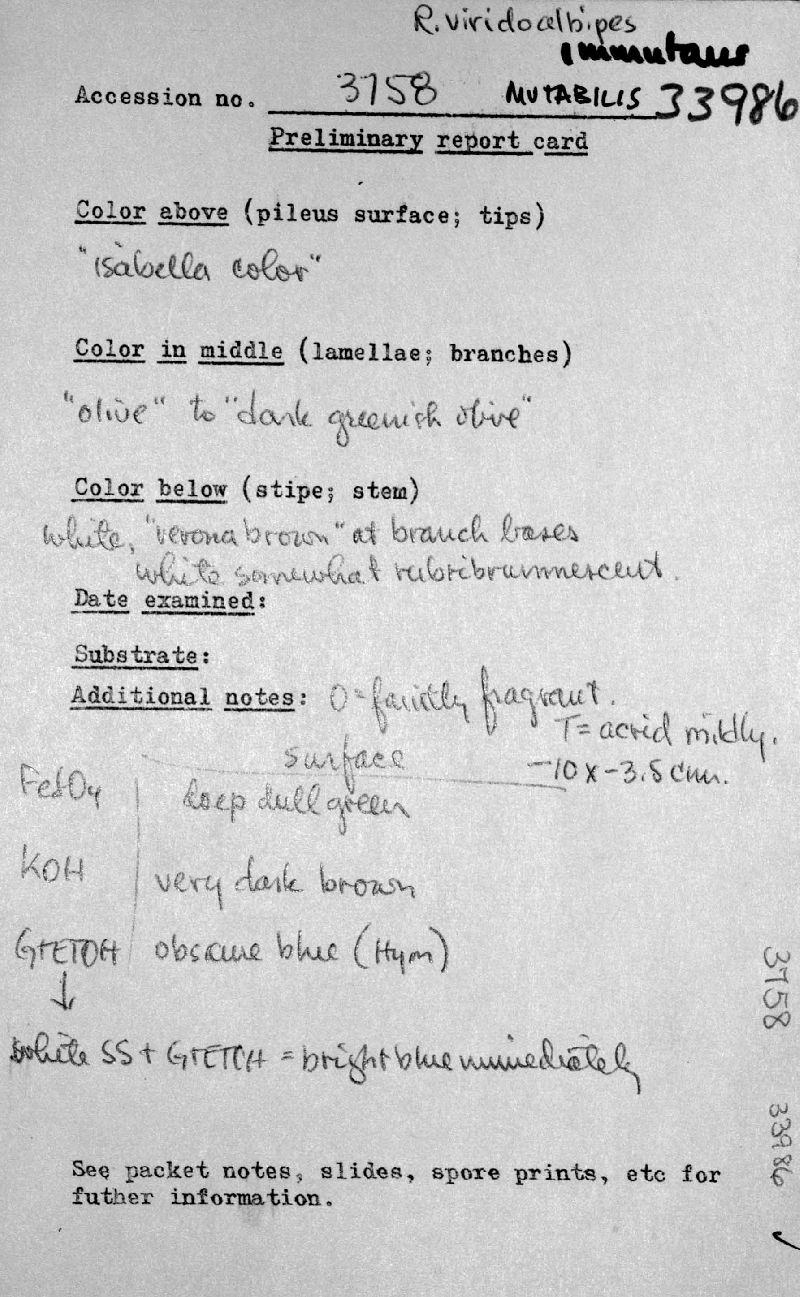 R. viridoalbipes
immutans
Accession no. 3758 MUTABILIS 33986
Preliminary report card
Color above (pileus surface; tips)
"isabella color"
Color in middle (lamellae; branches)
"olive" to "dark greenish olive"
Color below (stipe; stem)
white, "verona brown" at branch bases
white somewhat rubribrunnescent.
Date examined:
Substrate:
Additional notes: O = faintly fragrant.
T = acrid mildly.
surface
-10 x -3.5 cm.
FeSO4 deep dull green
KOH very dark brown
G+ETOH obscure blue (Hym)
↓
white SS + G+ETCH = bright blue immediately
3758
33986
See packet notes, slides, spore prints, etc for
futher information.